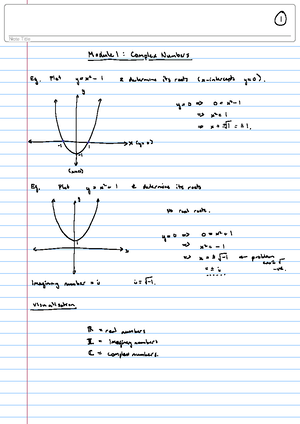 1
Module 1 : Complex Numbers
Eg. Plot y = x² - 1 & determine its roots (x-intercepts y=0).
y
y=0 ⇒ 0 = x² - 1
⇒ x² = 1
⇒ x = ±√1 = ±1.
-1 1 x (y=0)
-1
Eg. Plot y = x² + 1 & determine its roots
y
no real roots.
1
y=0 ⇒ 0 = x² + 1
⇒ x² = -1
x
⇒ x = ±√-1 ← problem
= ± i
Imaginary number = i i = √-1.
Visualisation
ℝ = real numbers
𝕀 = imaginary numbers
ℂ = complex numbers.